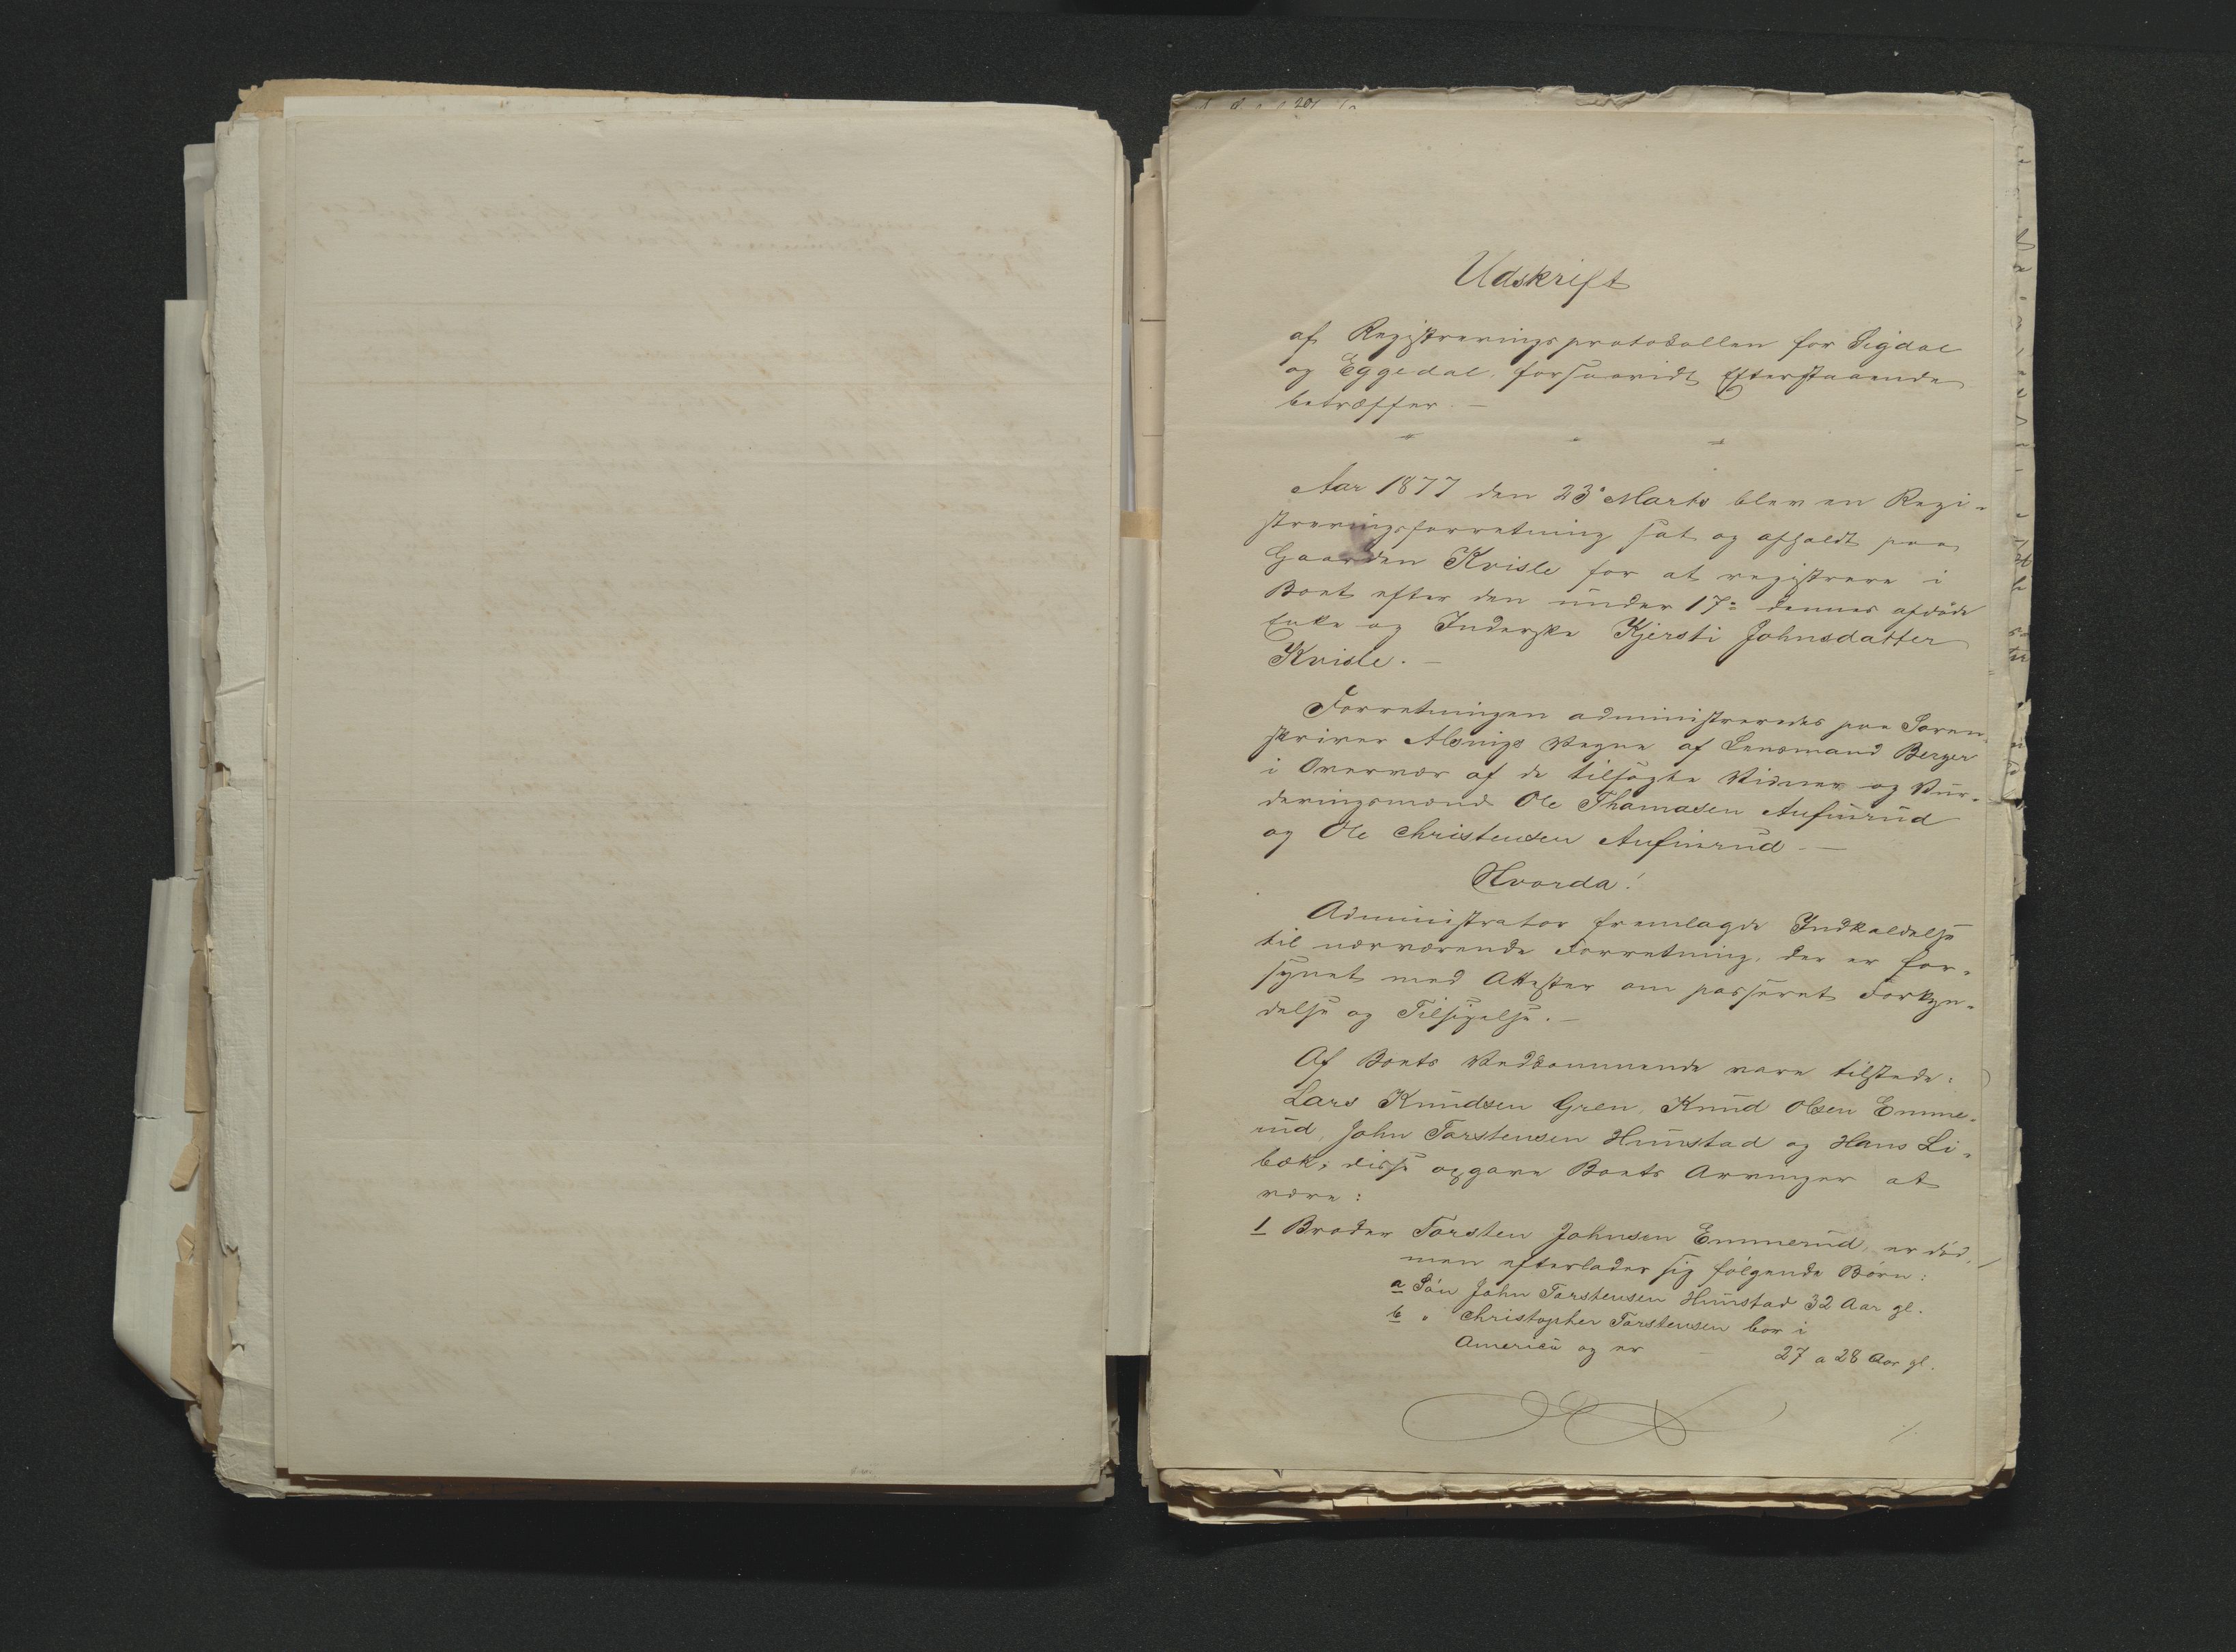 Udskrift
af Registreringsprotokollen for Sigdal
og Eggedal, forsaavidt Efterstaaende
betræffer. —
Aar 1877 den 23de Marts blev en Regi-
streringsforretning sat og afholdt paa
Gaarden Kvisle for at registrere i
Boet efter den under 17de dennes afdøde
Enke og Inderske Kjersti Johnsdatter
Kvisle. —
Forretningen administreredes paa Soren-
skriver Alsings Vegne af Lensmand Berger
i Overvær af de tilsagte Vidner og Vur-
deringsmænd Ole Thomasen Aufinrud
og Ole Christensen Aufinrud. —
Hvorda!
Administrator fremlagde Indkaldelse
til nærværende Forretning, der er for-
synet med Attester om passeret Forkyn-
delse og Tilsigelse. —
Af Boets Vedkommende vare tilstede:
Lars Knudsen Gren, Knud Olsen Emme-
rud, John Torstensen Hunstad og Hans Li-
bæk, disse opgave Boets Arvinger at
være:
1 Broder Torsten Johnsen Emmerud, er død,
men efterlader sig følgende Børn:
a Søn John Torstensen Hunstad 32 Aar gl.
b " Christopher Torstensen bor i
America og er — 27 a 28 Aar gl.